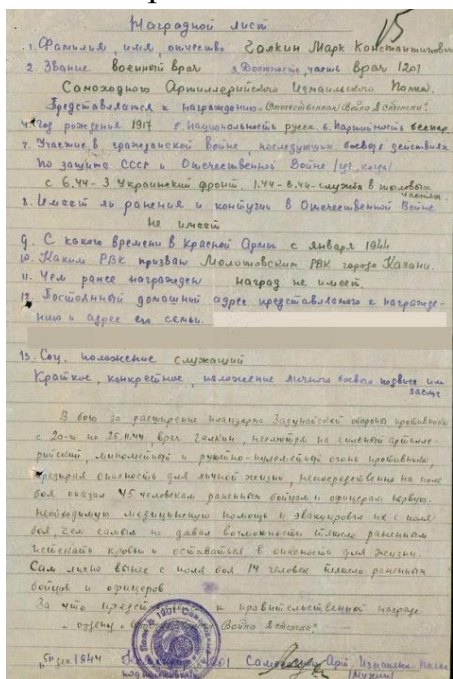 15
Наградной лист
1. Фамилия, имя, отчество Галкин Марк Константинович
2. Звание военный врач 3. Должность, часть врач 1201
Самоходного Артиллерийского Измаильского Полка.
Представляется к награждению Отечественная Война 2 степени.
4. Год рождения 1917 5. Национальность русск. 6. Партийность беспар.
7. Участие в гражданской войне, последующих боевых действиях
по защите СССР и Отечественной Войне /где, когда/
с 6.44 - 3 Украинский фронт. 1.44 - 6.44 - служба в тыловых частях.
8. Имеет ли ранения и контузии в Отечественной Войне
не имеет
9. С какого времени в Красной Армии с января 1944
10. Каким РВК призван Молотовским РВК города Казани.
11. Чем ранее награжден наград не имеет
12. Постоянный домашний адрес представляемого к награжде-
нию и адрес его семьи.
13. Соц. положение служащий
Краткое, конкретное, изложение личного боевого подвига или заслуг
В бою за расширение плацдарма Задунайской обороны противника
с 20-го по 25.11.44, врач Галкин, несмотря на сильный артилле-
рийский, минометный и ружейно-пулеметный огонь противника,
презирая опасность для личной жизни, непосредственно на поле
боя оказал 45 человекам раненым бойцам и офицерам первую
необходимую медицинскую помощь и эвакуировал их с поля
боя, чем самым не давал возможности тяжело раненым
истекать кровью и оставаться в опасности для жизни.
Сам лично вынес с поля боя 14 человек тяжело раненых
бойцов и офицеров
За что предст к правительственной награде
- ордену Война 2 степени."
1944 1201 Самоход. Арт. Измаильс. Полка
подполковник